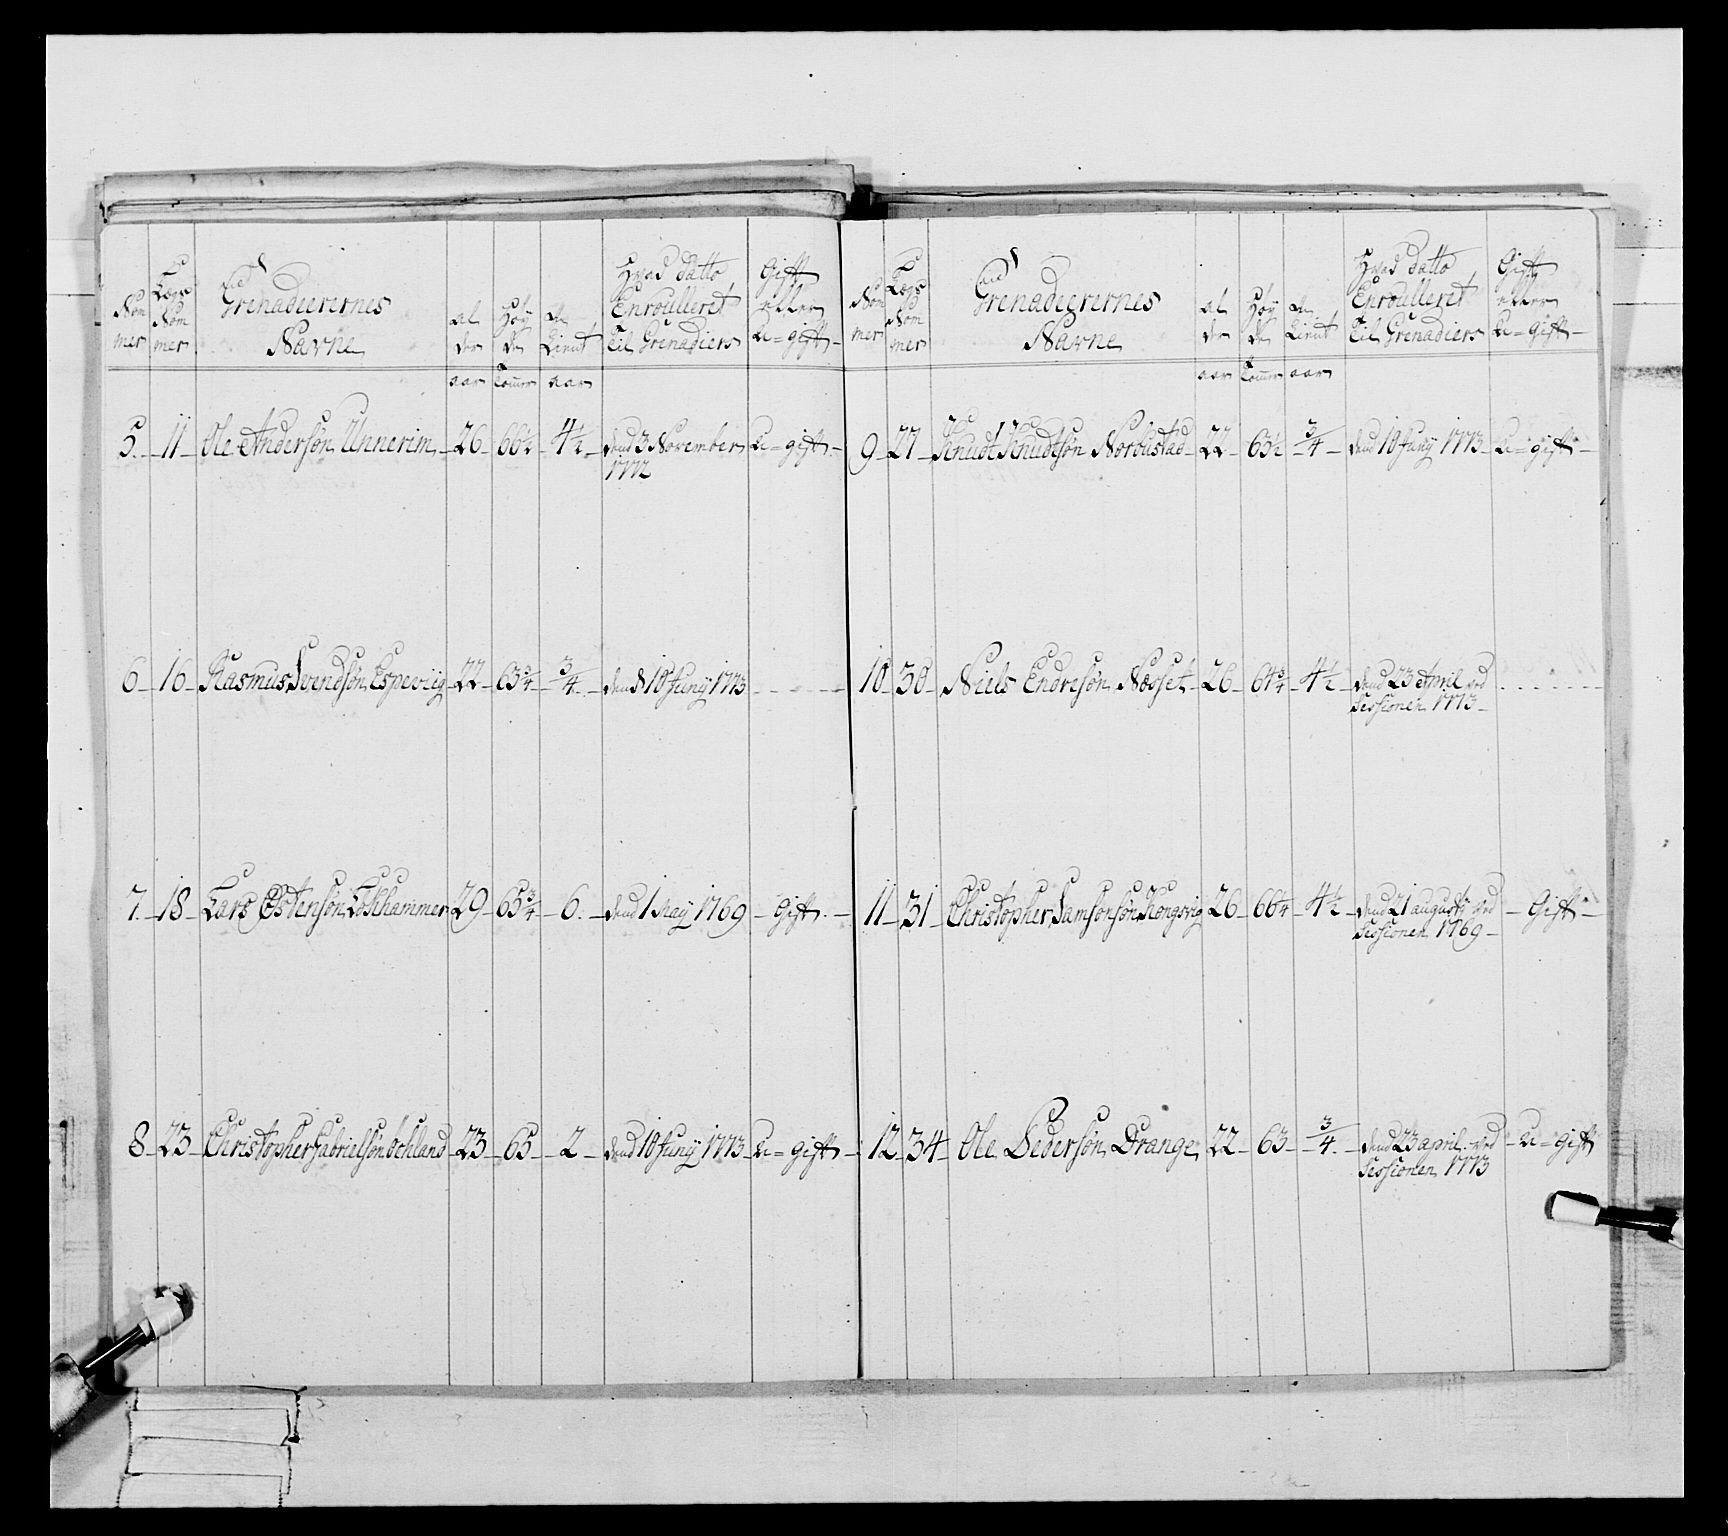 Nom
mer
Lægs
Nom
mer
Grenadeerernes
Navne
al
der
Høy
de
Tjent
Hvad datto
Enroulleret
Til Grenadiers
Gift
eller
U=gift
aar Tomer aar
5. 11 Ole Andersøn Unnerim 26 66½ 4½ dend 3 November U=gift
1772
6 16 Rasmus Svendsøn Espeviig 22 63¾ ¾ dend 10 Juny 1773
7. 18 Lars Østensøn Lokhammer 29 65¾ 6 dend 1 May 1769 Gift
8 23 Christopher Gabrielsøn Ochland 23 65 2 dend 10 Juny 1773 U=gift
Nom
mer
Lægs
Nom
mer
Grenadeerernes
Navne
al
der
Høy
de
Tient
Hvad datto
Enroulleret
Til Grenadiers
Gift
eller
U=gift
aar Tomer aar
9 27 Knudt Knudtsøn Norbustad 22 63½ ¾ dend 10 Juny 1773 U=gift
10 30 Niels Endresøn Næsset 26 64¾ 4½ dend 23 April ved
Sessionen 1773
11 31 Christopher Samsonsøn Kongsvig 26 66¼ 4½ dend 21 augusty ved Gift
Sessionen 1769
12 34 Ole Pedersøn Drange 22 63 ¾ dend 23 april ved U=gift
Sessionen 1773